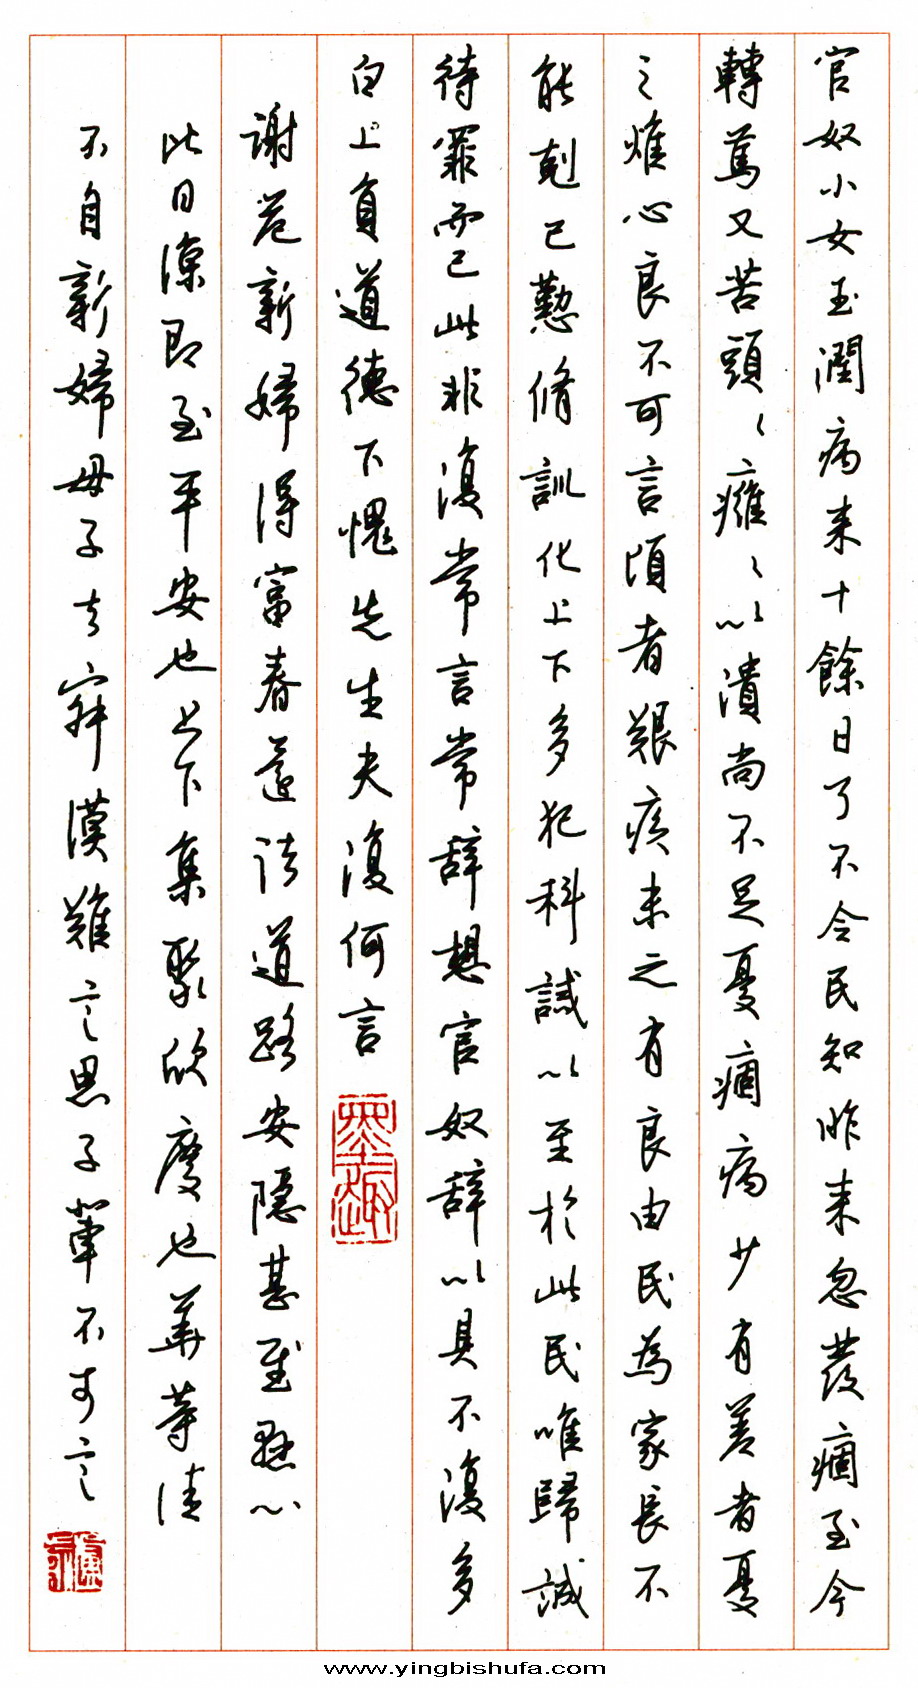 官奴小女玉潤病来十餘日了不令民知昨来忽發痼至今
轉篤又苦頭〻癰〻以潰尚不足憂痼病少有差者憂
之燋心良不可言頃者艱疾未之有良由民為家長不
能剋己懃脩訓化上下多犯科誡以至於此民唯歸誠
待罪而已此非復常言常辭想官奴辭以具不復多
白上負道德下愧先生夫復何言
謝范新婦得富春還諸道路安隱甚慰懸心
比日涼即至平安也上下集聚欣慶也華等佳
不自新婦母子去寂漠難言思子輩不可言
墨趣
www.yingbishufa.com